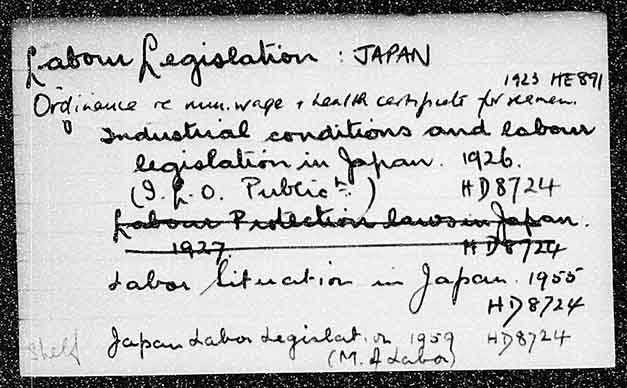 Labour Legislation : JAPAN
1923 HE891
Ordinance re min. wage + health certificate for seamen.
Industrial conditions and labour
legislation in Japan. 1926.
(I. L. O. Publicn.) HD8724
Labour Protection laws in Japan.
1927 HD8724
Labor Situation in Japan. 1955
HD8724
Shelf Japan Labor Legislation 1959 HD8724
(M. of Labor)